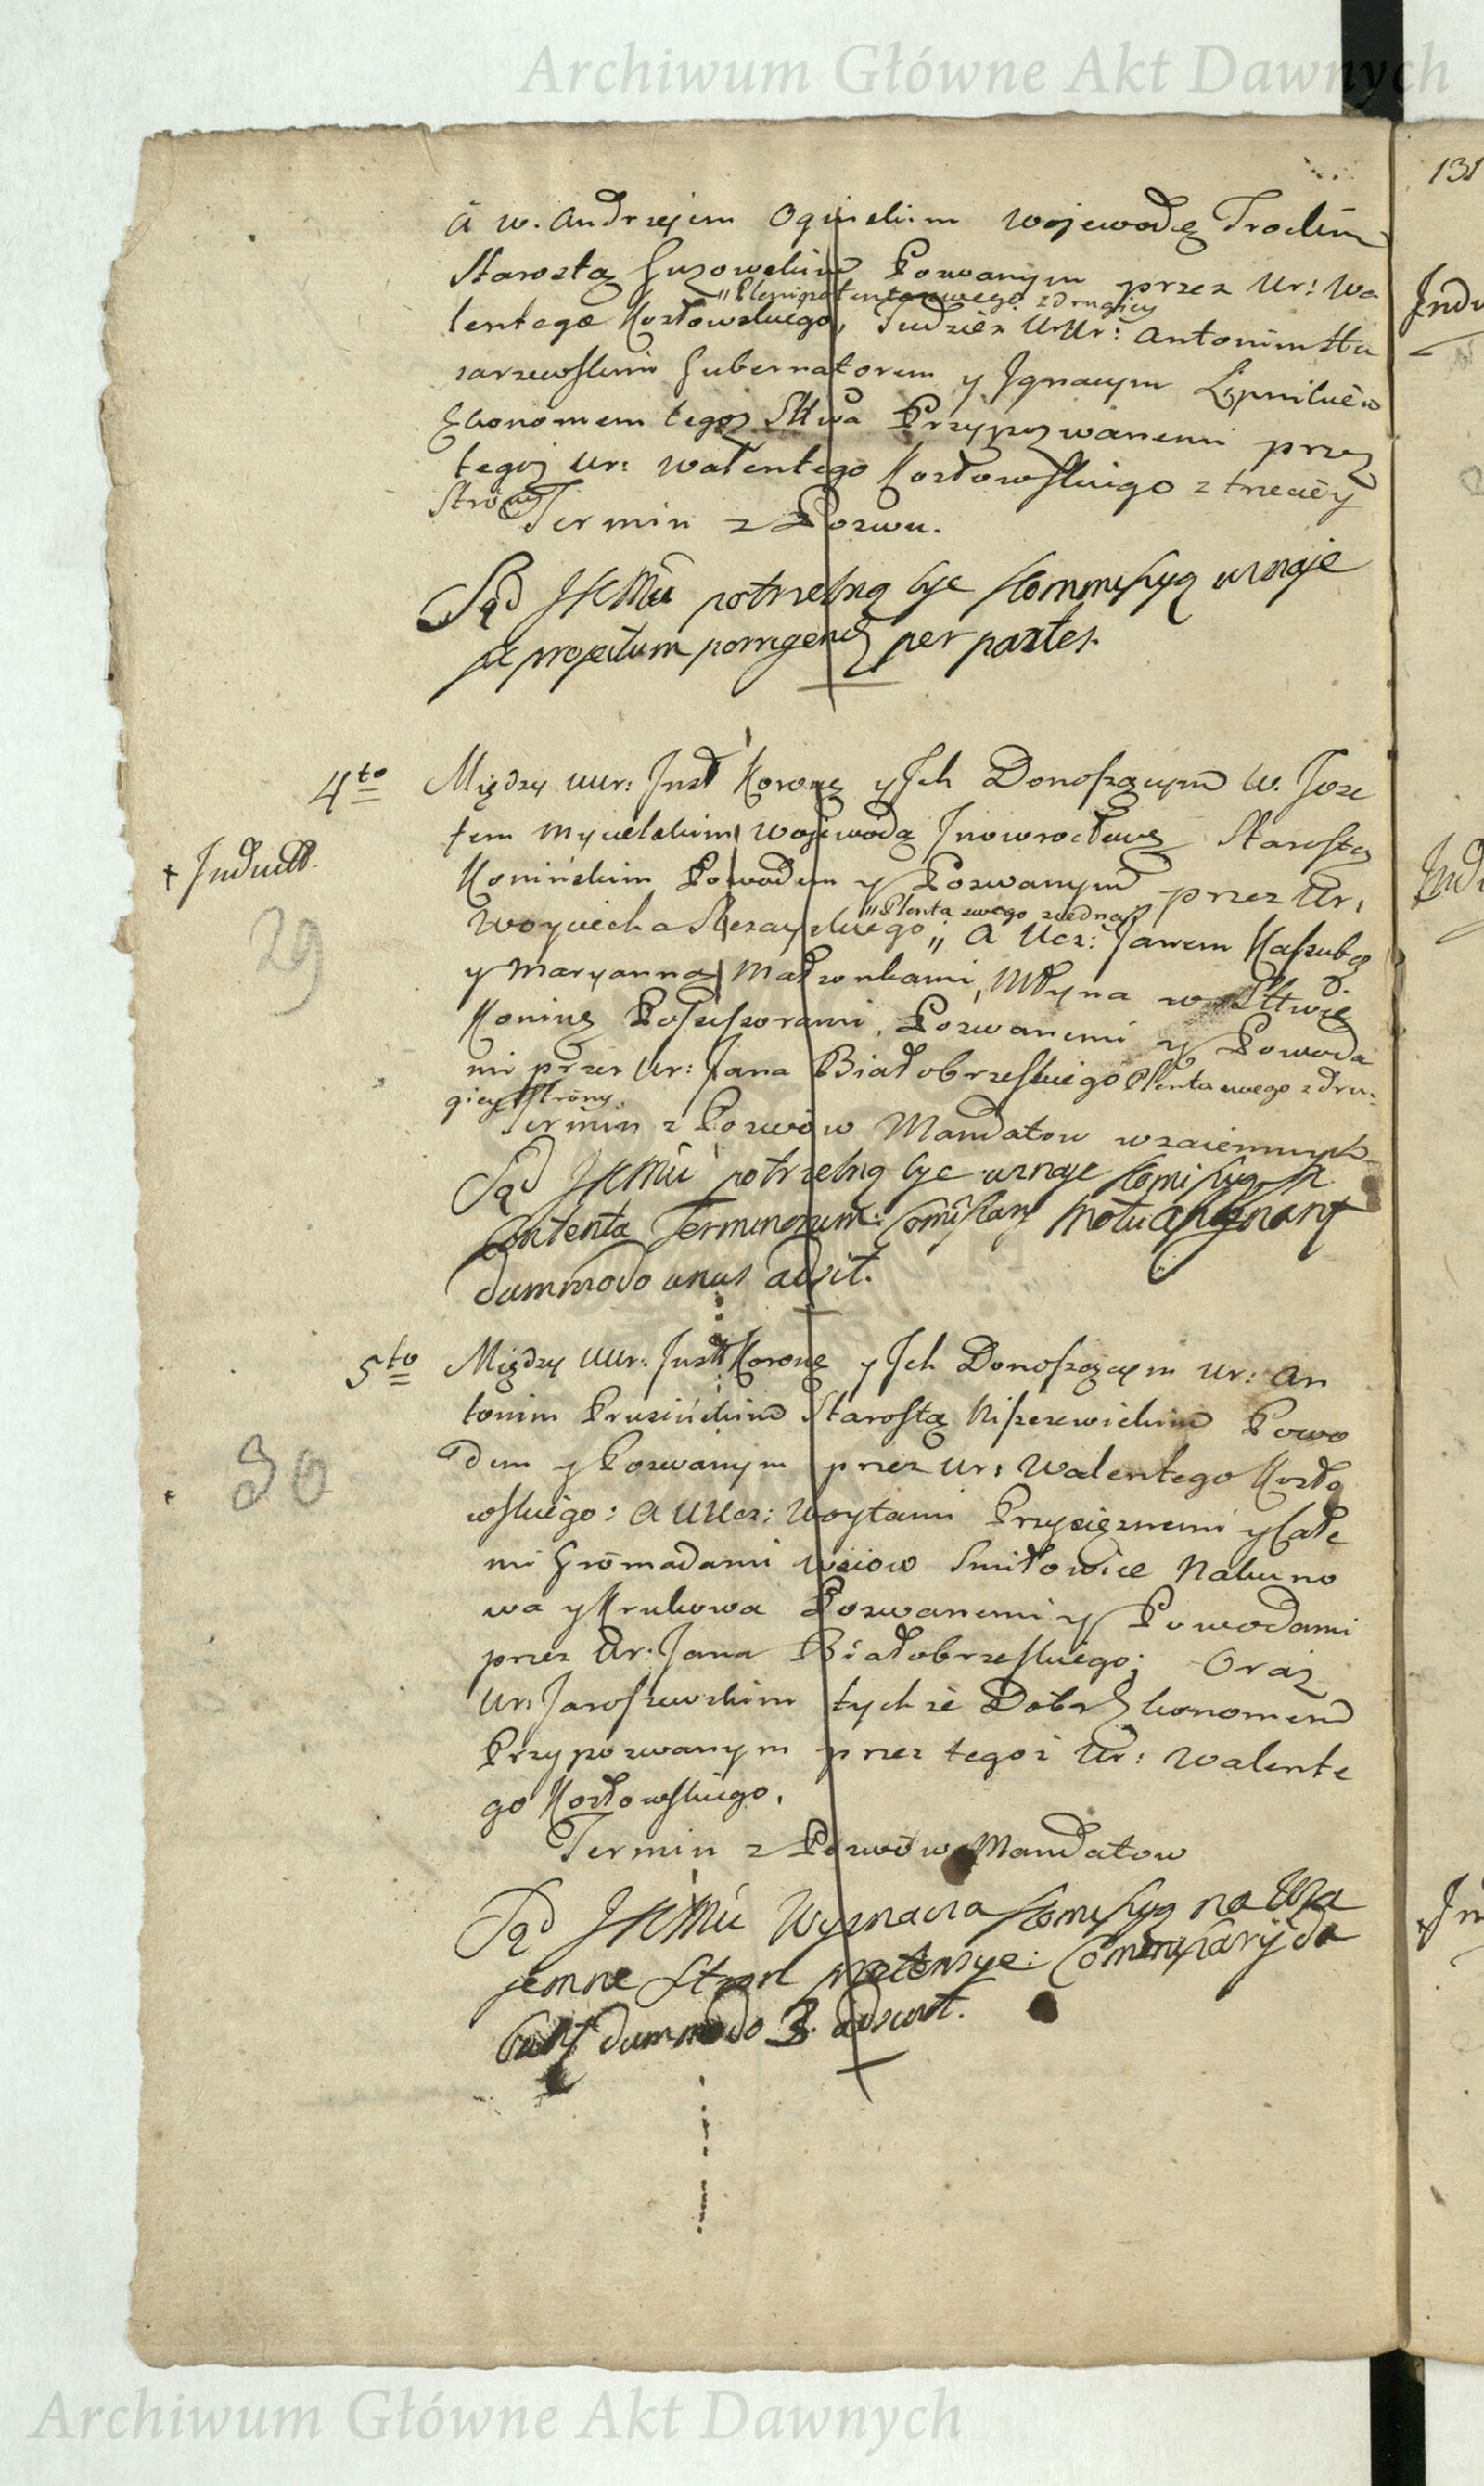 Archiwum Główne Akt Dawnych
131
á w. Andrzejem Oginskim Wojewodą Trockim
Starostą Guzowskim Pozwanym przez Ur: Wa
"Plenipotenta swego z drugiey
lentego Kozłowskiego, Tudzież UrUr: Antonim Sta
rzewskim Gubernatorem y Ignacym Lipnickim
Ekonomem tegoż Sttwa Przypozwanemi przez
tegoż Ur: Walentego Kozłowskiego z trzeciey
Strony
Termin z Pozwu.
Sąd JKMci potrzebną być Kommissyą uznaje
per partes.
4to Między UUr: Inst Korony y Ich Donoszącym W. Joze
fem Mycielskim Wojewodą Inowrocławs Starostą
+ Induct.
Konińskim Powodem y Pozwanym przez Ur:
"Plenta swego z iedney
Woyciecha Skrzay skiego" A Ucz: Janem Kaszubą
29
y Maryanną Małżonkami, Młyna w Sttwie
Konins Possessorami, Pozwanemi y Powoda
mi przez Ur: Jana Białobrzeskiego Plenta swego z dru:
giey Strony.
Termin z Pozwów Mandatow wzaiemnych
Sąd JKMci potrzebną być uznaje Komissyą
Contenta Terminorum:
dummodo unus adsit.
5to Między UUr: Instt Korony y Ich Donoszącym Ur: An
tonim Prusińskim Starostą Kiszewickim Powo
dem y Pozwanym przez Ur: Walentego Kozło
30
wskiego: A UUcz: Woytami Przysięznemi y Całe
mi Gromadami Wsiow Smiłowice Nakuno
wa y Krukowa Pozwanemi y Powodami
przez Ur: Jana Białobrzeskiego; Oraz
Ur: Jaroszewskim tychże Dóbr Ekonomem
Przypozwanym przez tegoż Ur: Walente
go Kozłowskiego.
Termin z Pozwów Mandatow
Sąd JKMci Wyznacza Komissyą na Wza
jemne Stron pretensye:
dummodo 3. adsint.
Archiwum Główne Akt Dawnych